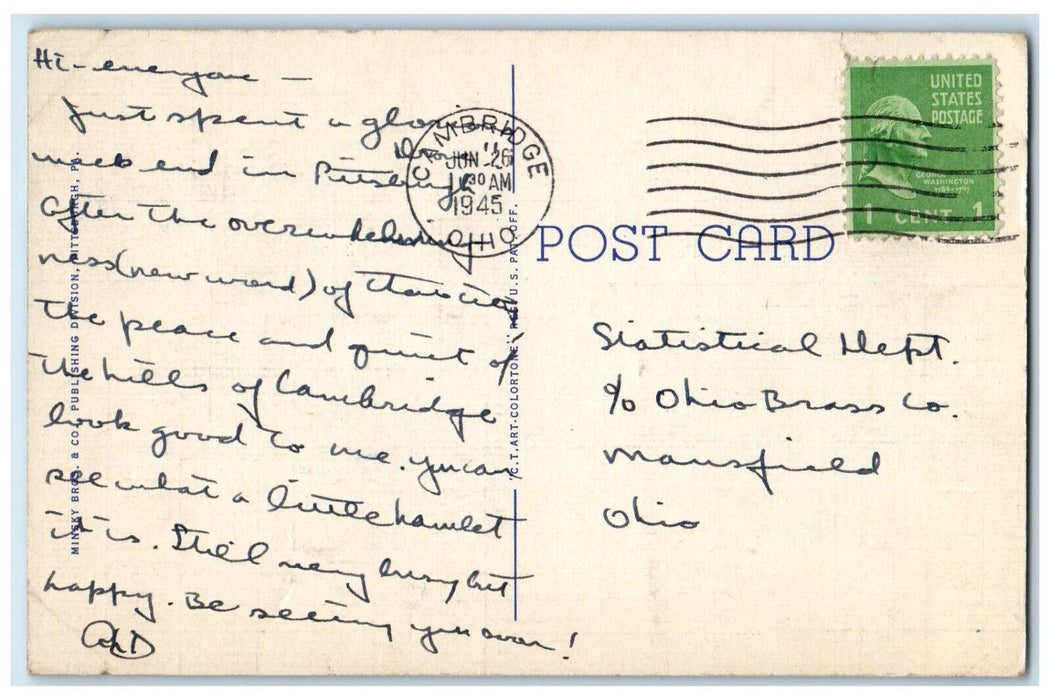 Hi - everyone -
Just spent a glorious
week end in Pittsburgh
After the overwhelming
ness (new word) of that city
the peace and quiet of
the hills of Cambridge
look good to me. You can
see what a little hamlet
it is. Still very busy but
happy. Be seeing you soon!
MINSKY BROS. & CO., PUBLISHING DIVISION, PITTSBURGH, PA.
"C.T. ART-COLORTONE" REG. U.S. PAT. OFF.
CAMBRIDGE
JUN 26
11 30 AM
1945
OHIO
UNITED
STATES
POSTAGE
GEORGE
WASHINGTON
1789-1797
1 CENT 1
POST CARD
Statistical Dept.
c/o Ohio Brass Co.
Mansfield
Ohio